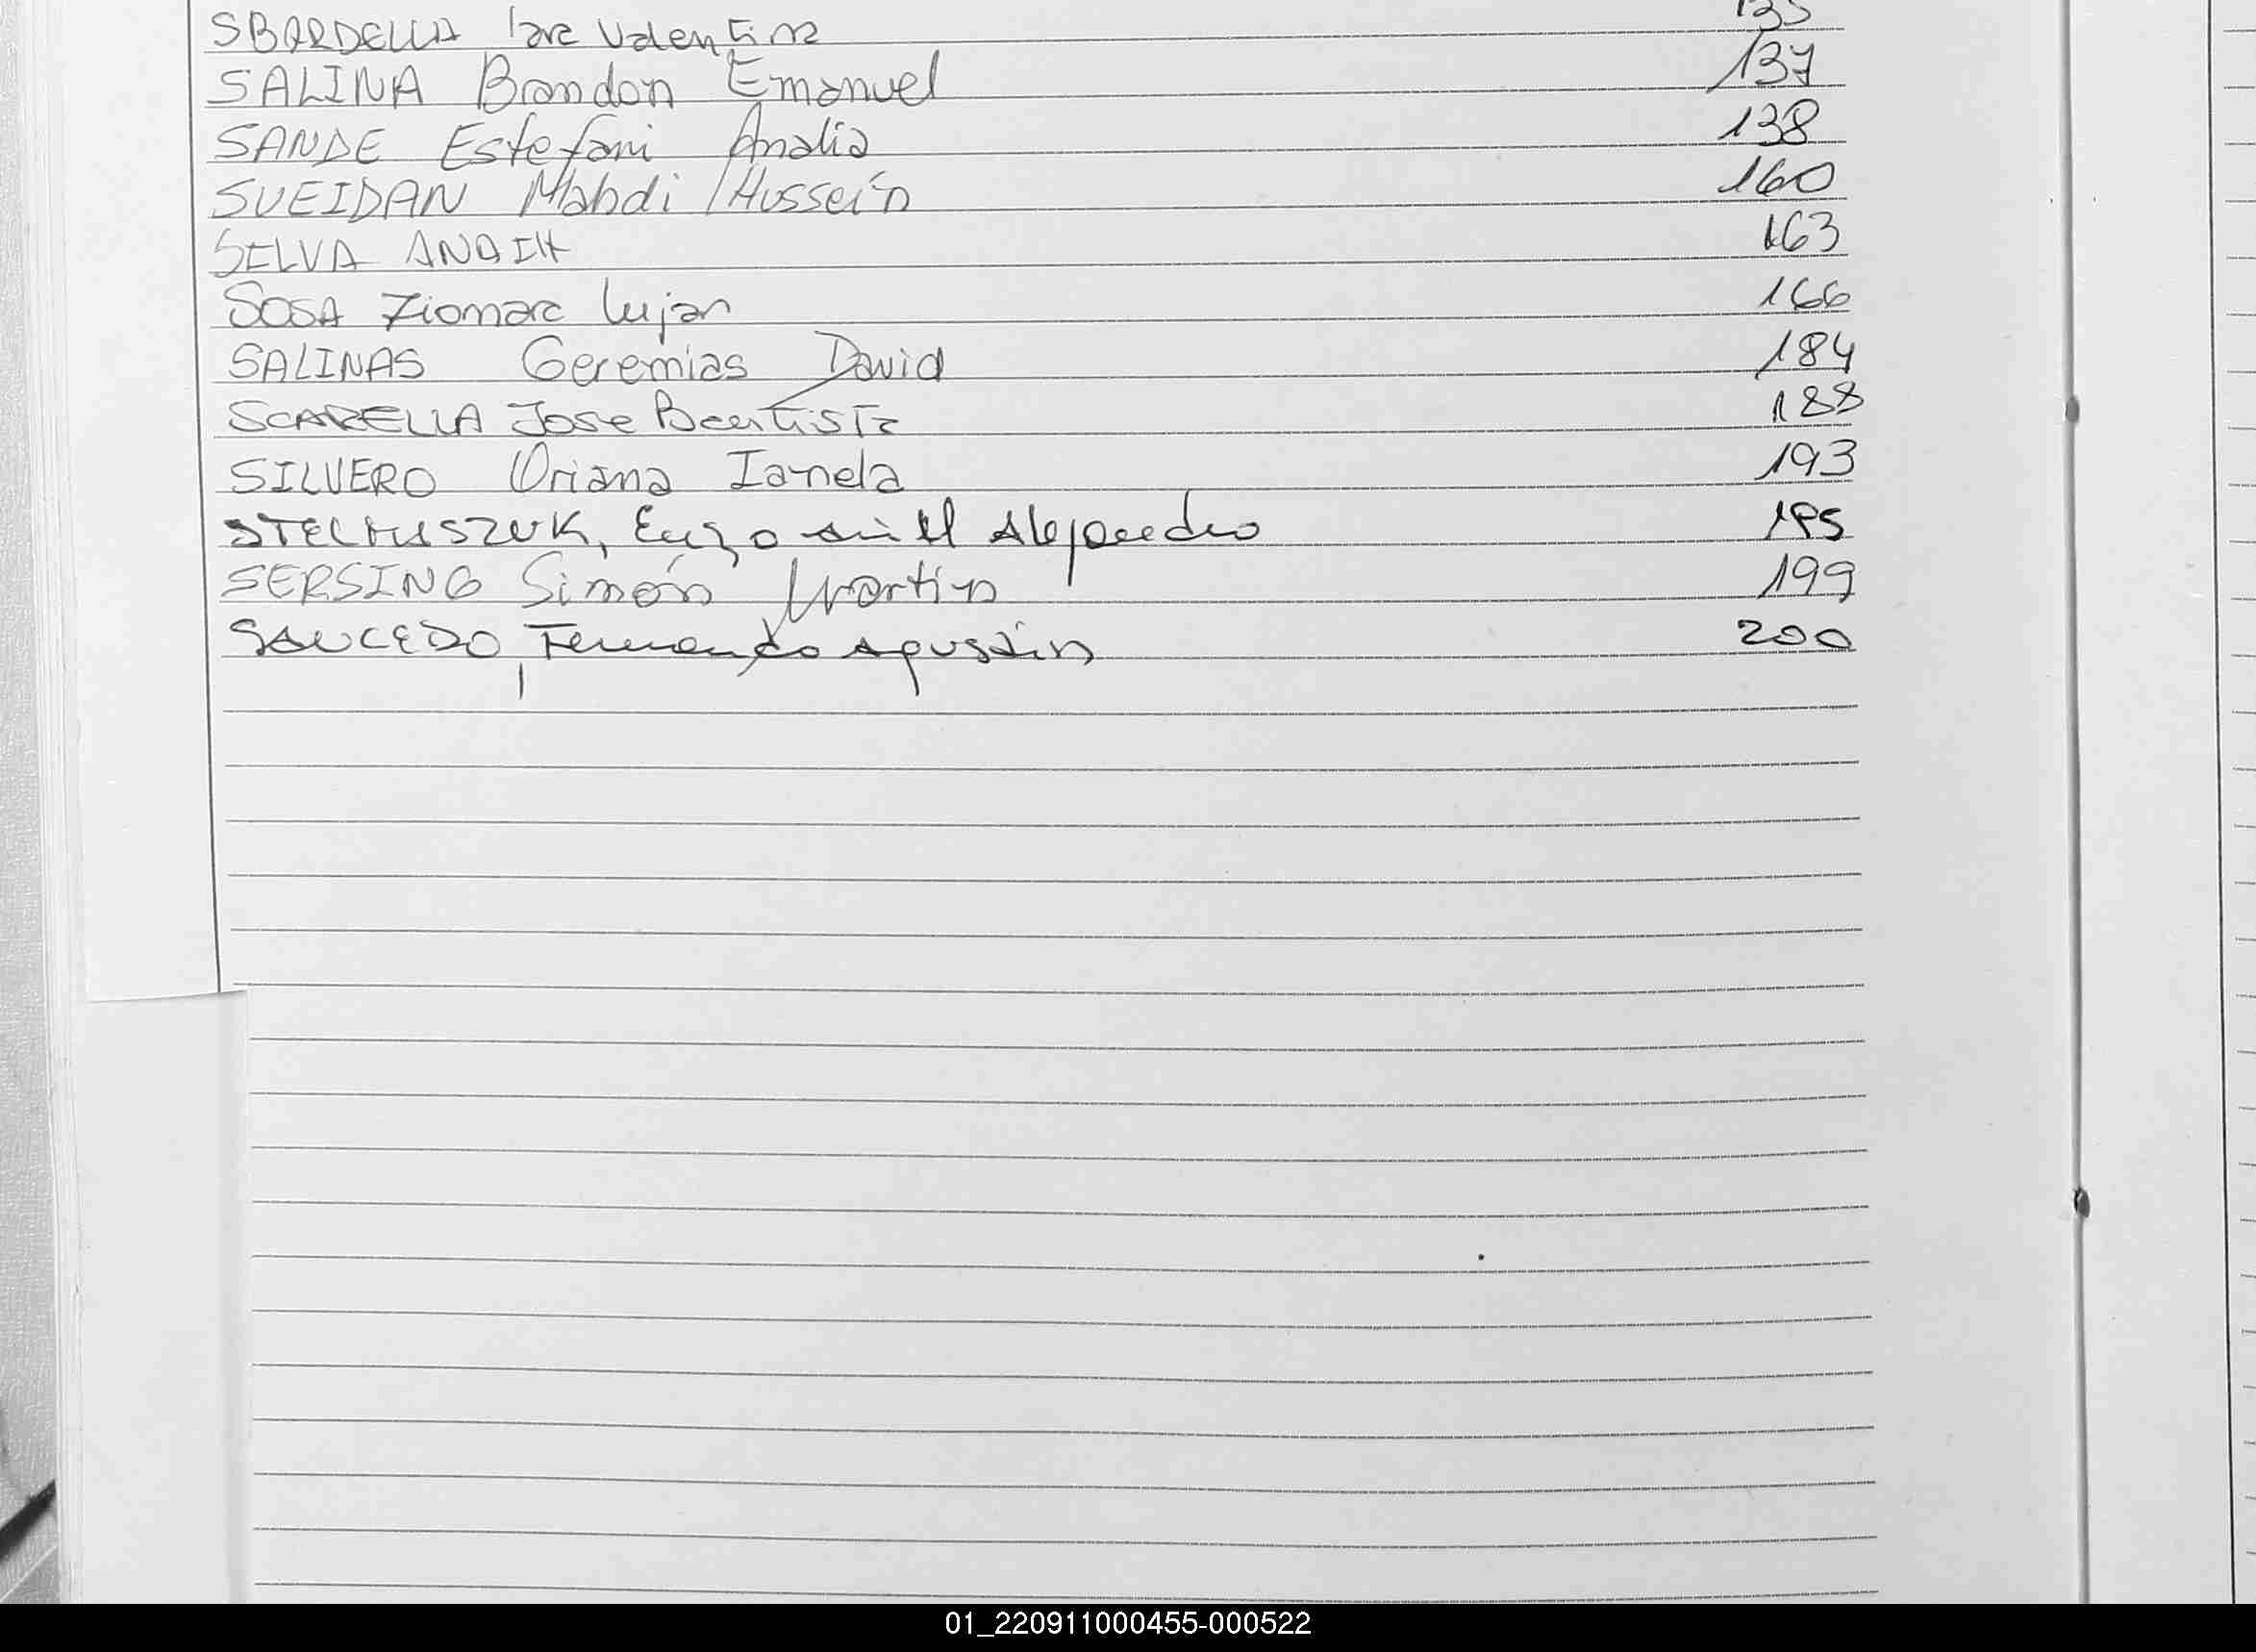 SBARDELLA Iara Valentina 135
SALINA Brandon Emanuel 137
SANDE Estefani Analia 138
SUEIDAN Mahdi Hussein 160
SILVA ANAIH 163
SOSA Ziomara Lujan 166
SALINAS Geremias David 184
SCARELLA Jose Bautista 188
SILVERO Oriana Ianela 193
STELMASZUK, Enzo Alejandro 195
SERSING Simón Martin 199
SAUCEDO, Fernando Agustin 200
01_220911000455-000522